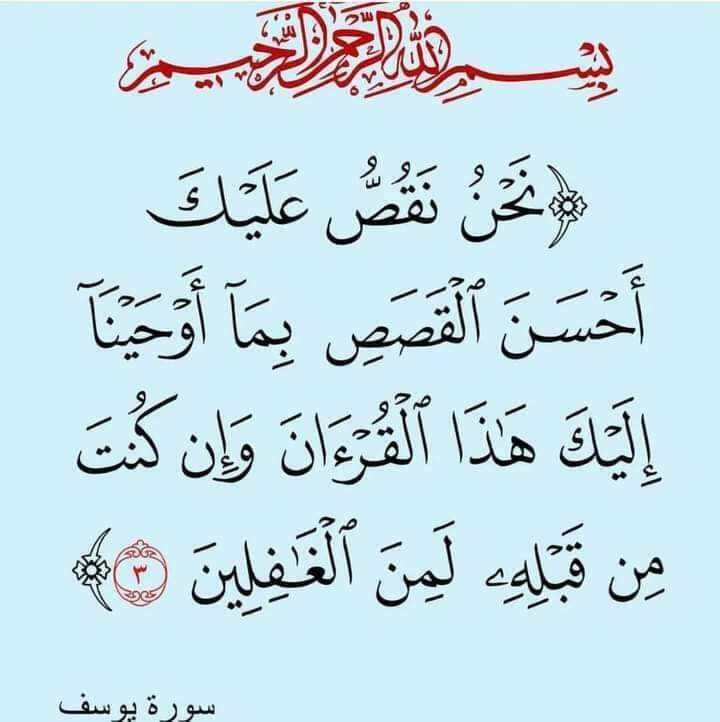 بِسْمِ اللهِ الرَّحْمٰنِ الرَّحِيمِ
﴿نَحْنُ نَقُصُّ عَلَيْكَ
أَحْسَنَ ٱلْقَصَصِ بِمَآ أَوْحَيْنَآ
إِلَيْكَ هَٰذَا ٱلْقُرْءَانَ وَإِن كُنتَ
مِن قَبْلِهِۦ لَمِنَ ٱلْغَٰفِلِينَ ٣﴾
سورة يوسف